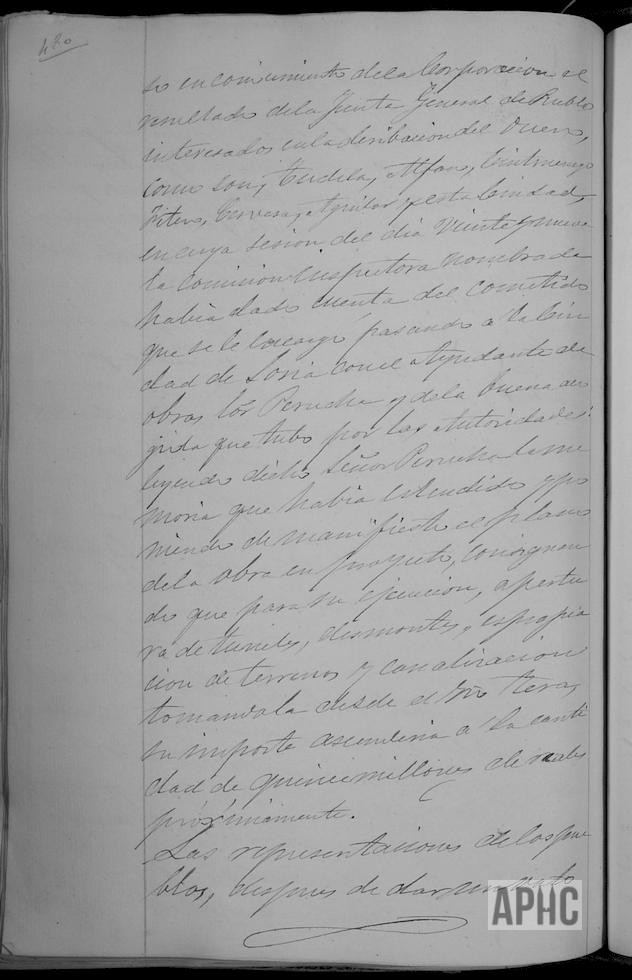 480
so en conocimiento de la Corporacion el
resultado de la Junta General de Pueblos
interesados en la deribacion del Duero,
como son, Tudela, Alfaro, Cintruenigo
Fitero, Cervera, Aguilar y esta Ciudad,
en cuya sesion del dia veinte y nueve
la Comision Inspectora nombrada
habia dado cuenta del cometido
que se le encargó pasando a la Ciu
dad de Soria con el Ayudante de
obras Sor Perucha y de la buena aco
gida que tubo por las autoridades:
leyendo dicho Señor Perucha la me
moria que habia estendido y po
niendo de manifiesto el plano
de la obra en proyecto, consignan
do que para su ejecucion, apertu
ra de tuneles, desmontes, espropia
cion de terrenos y canalizacion
tomandola desde el Rio Tera,
su importe ascenderia a la canti
dad de quince millones de reales
próximamente.
Las representaciones de los pue
blos, despues de dar un voto
APHC